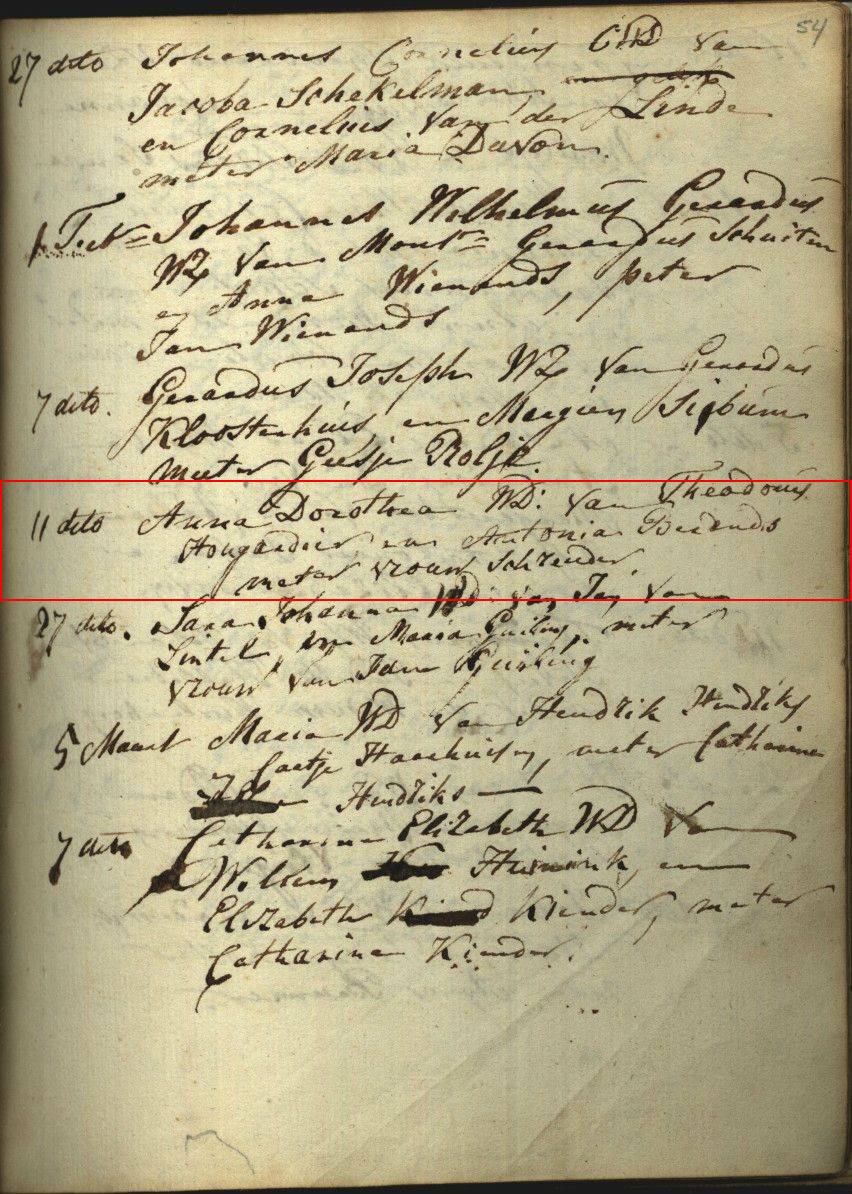 54
27 dito Johannes Cornelius van
Jacoba Schekelman,
en Cornelius van der Linde
meter Maria Davon.
1 Feb= Johannes Wilhelmus Gerardus
WZ van Mons= Gerardus Schuiten
en Anna Wienands, peter
Jan Wienands
7 dito. Gerardus Joseph WZ van Gerardus
Kloosterhuis en Margien
meeter Geesje Rolje.
11 dito Anna Dorothea WD: van Theodorus
Hougardier en Antonia Berends
meter vrouw Schreuder.
27 dito. Sara Johanna WD: van Jan van
Lintel, en Maria meter
vrouw van
5 Maart Maria WD van Hendrik Hendriks
Caatje Haarhuisen, meter Catharina
Hendriks
7 dito Catharina Elizabeth WD van
Willem en
Elizabeth Kiender, meter
Catharina Kiender.